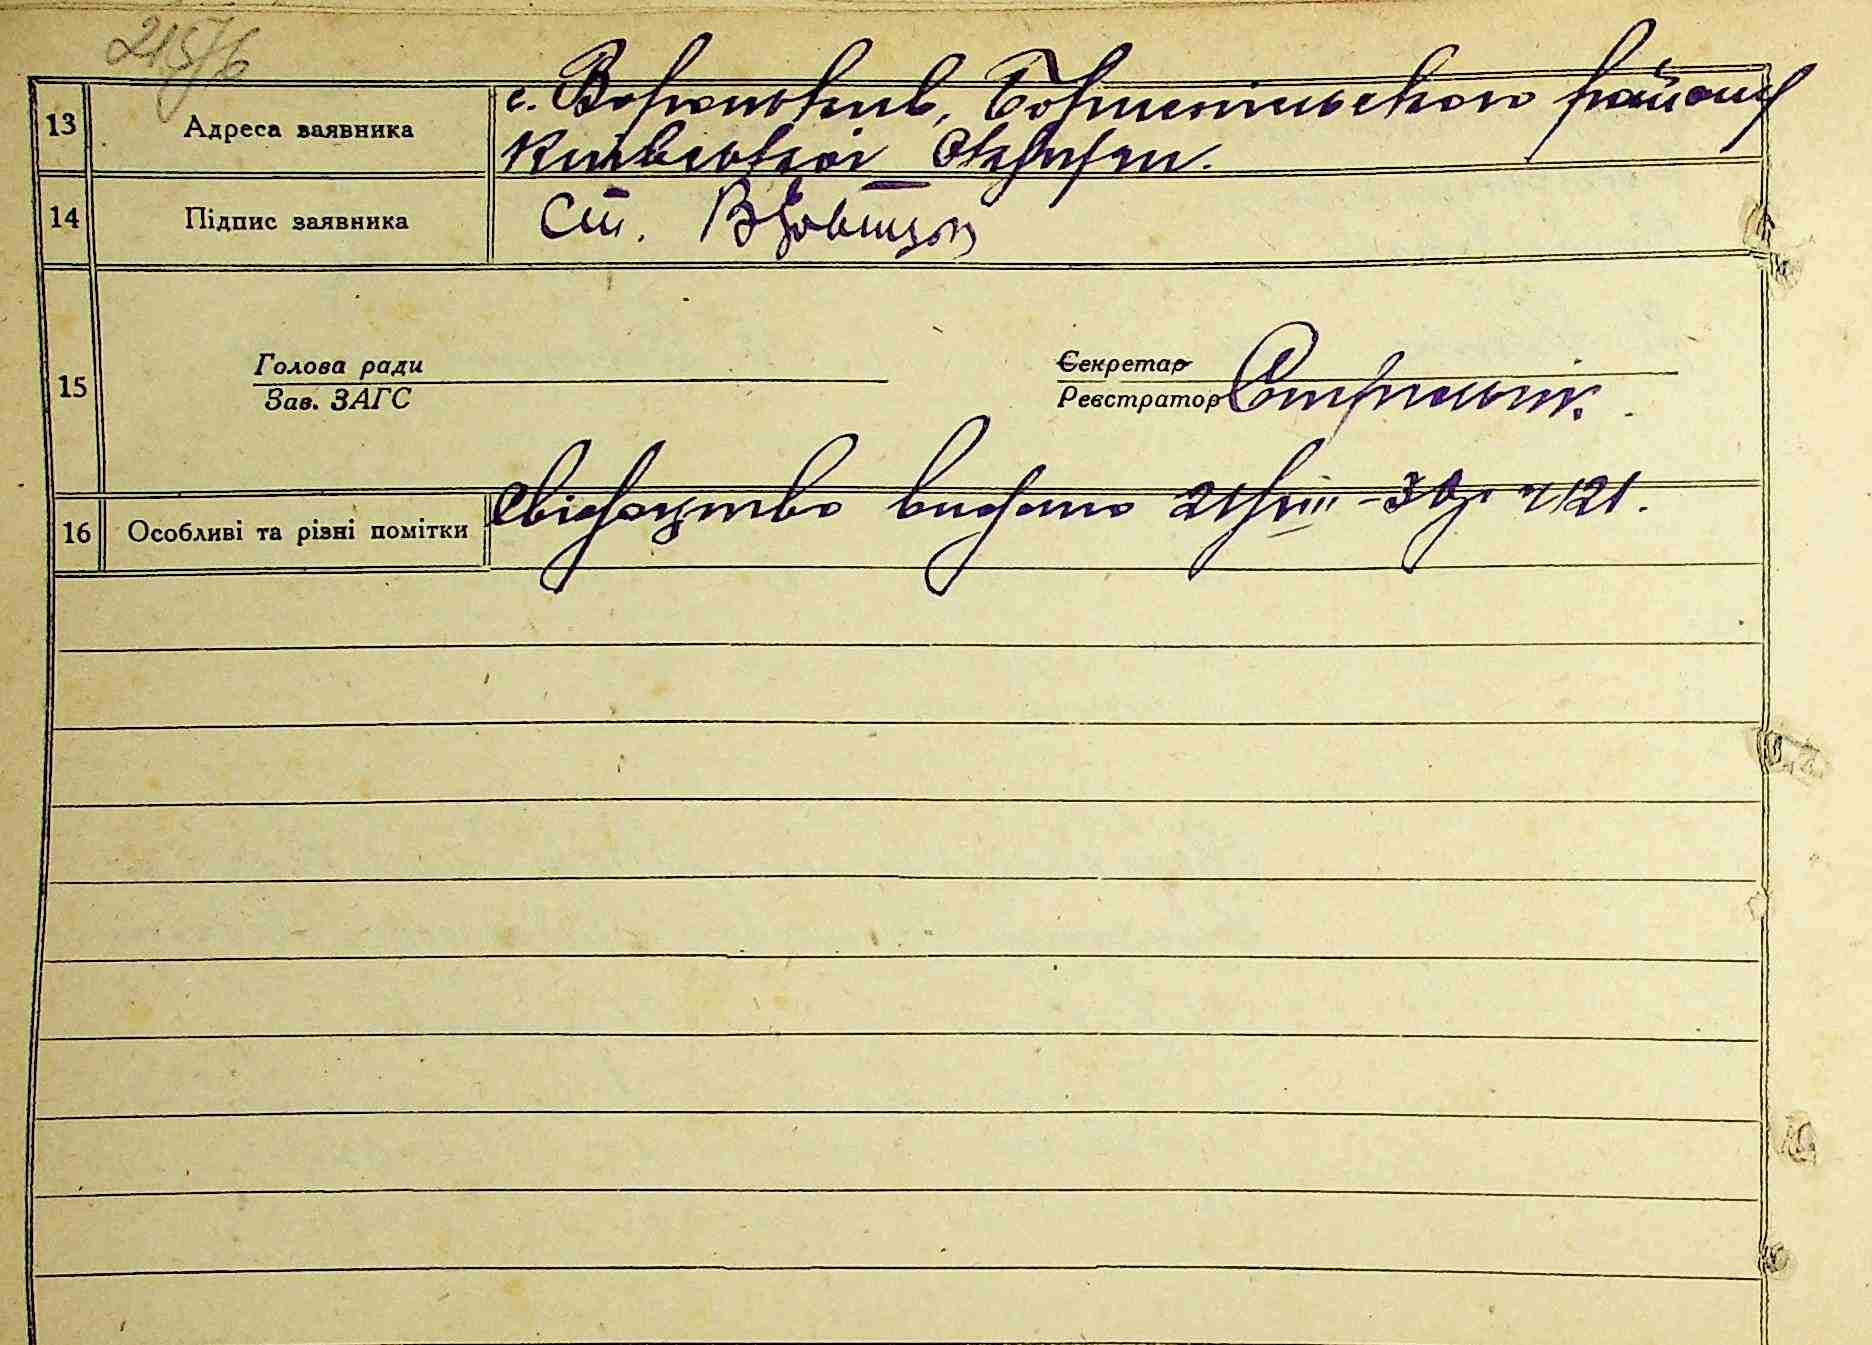 215/6
13 Адреса заявника с. Вороньків, Бориспільского району
Київської Округи.
14 Підпис заявника Ст. Вдовиченко
15 Голова ради Секретар
Зав. ЗАГС Реєстратор
16 Особливі та різні помітки Свідоцтво видано 21/VIII-30 р. №121.